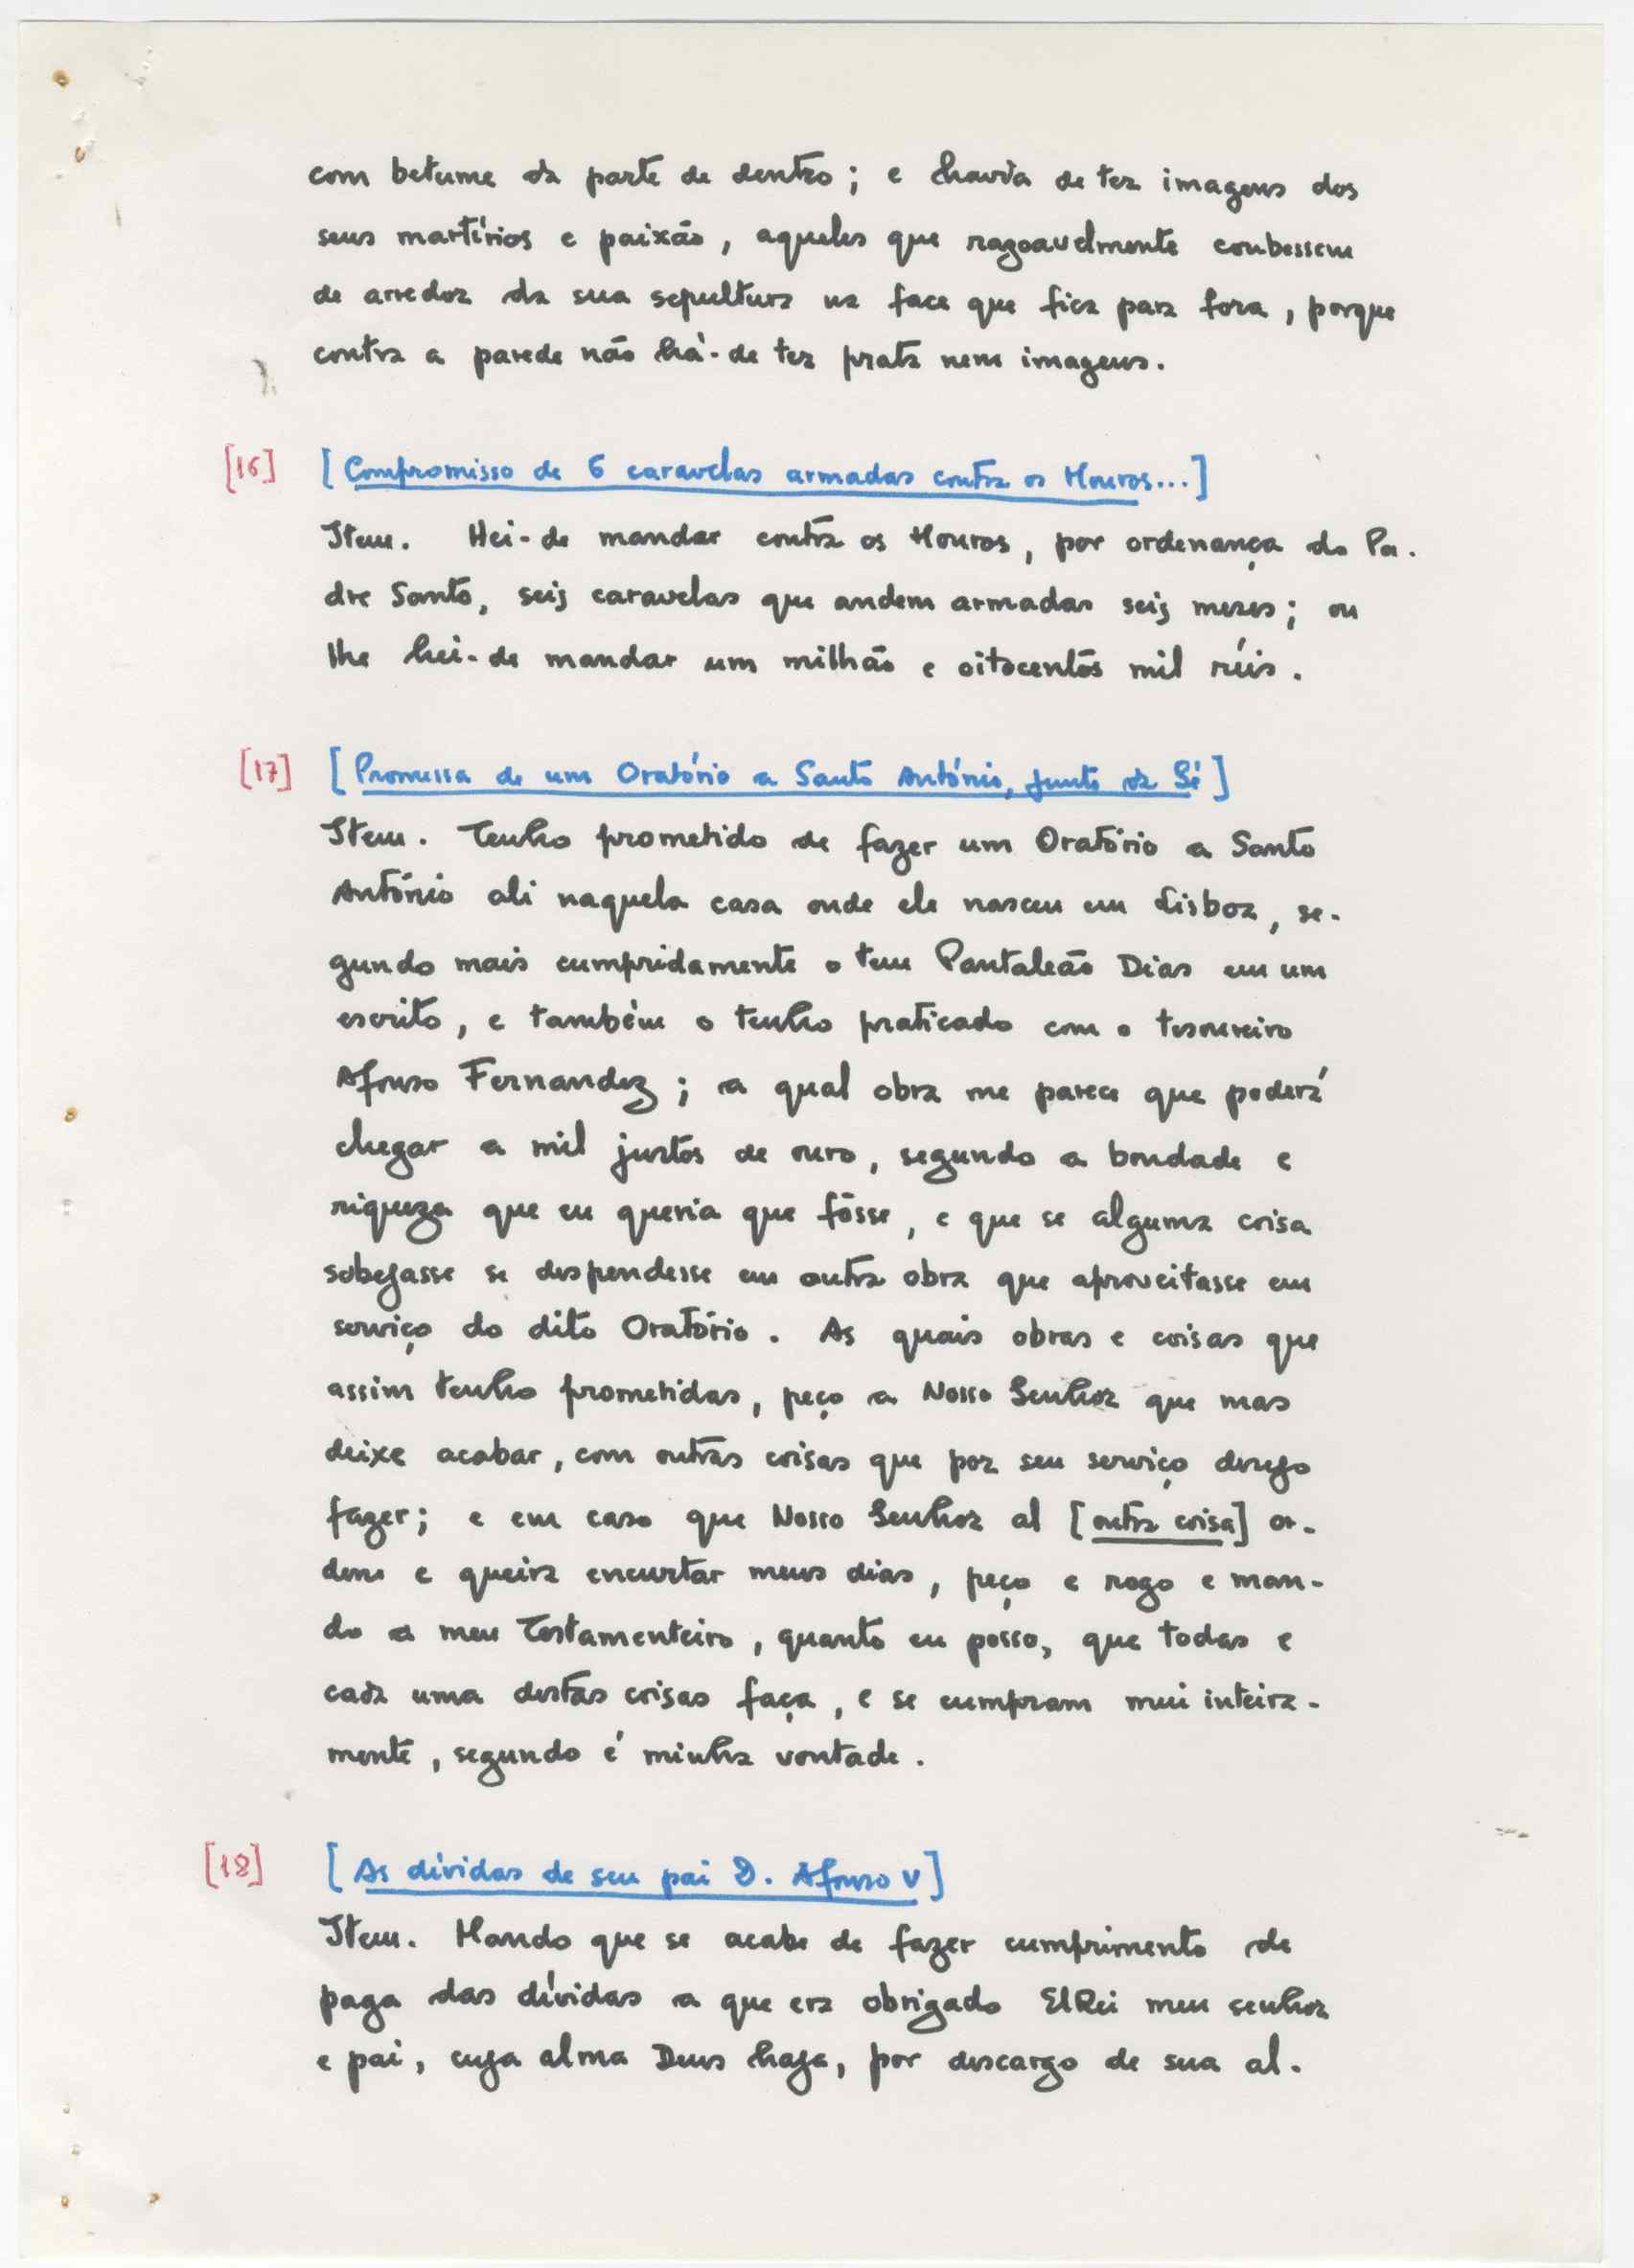 com betume da parte de dentro; e havia de ter imagens dos
seus martírios e paixão, aqueles que razoavelmente coubessem
de arredor da sua sepultura na face que fica para fora, porque
contra a parede não há-de ter prata nem imagens.
[16] [Compromisso de 6 caravelas armadas contra os Mouros...]
Item. Hei-de mandar contra os Mouros, por ordenança do Pa-
dre Santo, seis caravelas que andem armadas seis meses; ou
lhe hei-de mandar um milhão e oitocentos mil réis.
[17] [Promessa de um Oratório a Santo António, junto da Sé]
Item. Tenho prometido de fazer um Oratório a Santo
António ali naquela casa onde ele nasceu em Lisboa, se-
gundo mais cumpridamente o tem Pantaleão Dias em um
escrito, e também o tenho praticado com o tesoureiro
Afonso Fernandez; a qual obra me parece que poderá
chegar a mil justos de ouro, segundo a bondade e
riqueza que eu queria que fôsse, e que se alguma coisa
sobejasse se despendesse em outra obra que aproveitasse em
serviço do dito Oratório. As quais obras e coisas que
assim tenho prometidas, peço a Nosso Senhor que mas
deixe acabar, com outras coisas que por seu serviço desejo
fazer; e em caso que Nosso Senhor al [outra coisa] or-
dene e queira encurtar meus dias, peço e rogo e man-
do a meu Testamenteiro, quanto eu posso, que todas e
cada uma destas coisas faça, e se cumpram mui inteira-
mente, segundo é minha vontade.
[18] [As dívidas de seu pai D. Afonso V]
Item. Mando que se acabe de fazer cumprimento de
paga das dívidas a que era obrigado ElRei meu senhor
e pai, cuja alma Deus haja, por descargo de sua al-